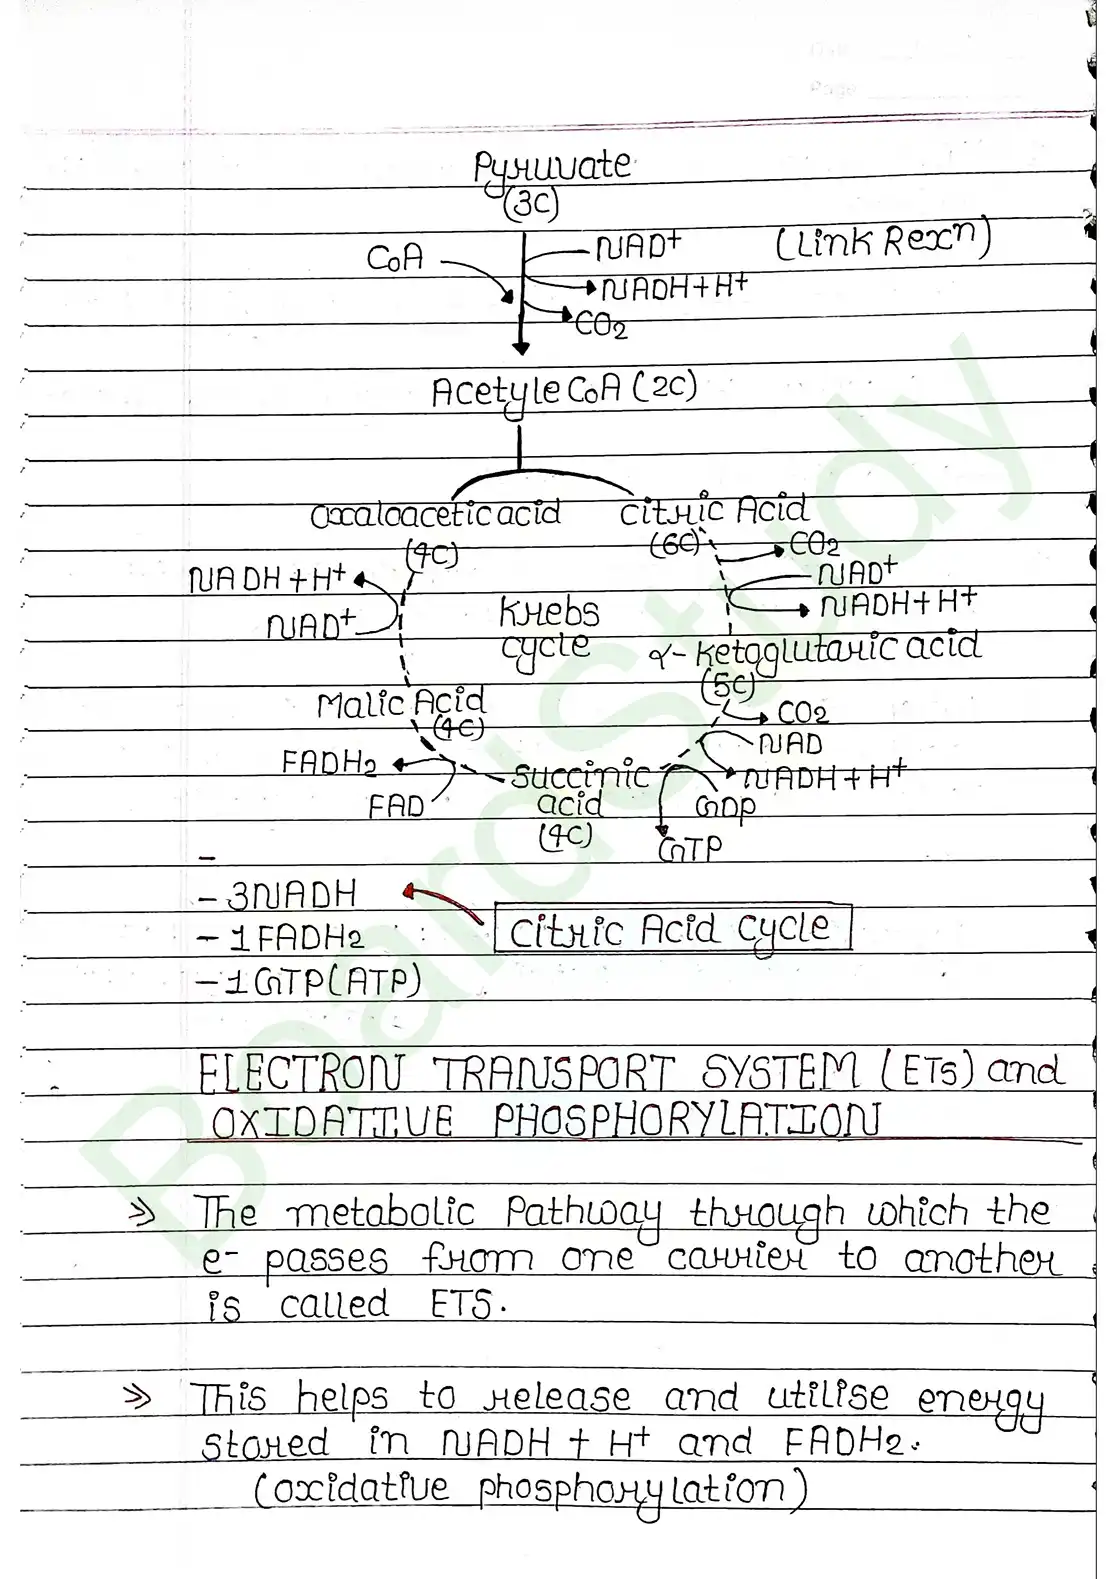 Date
Page
Pyruvate
(3C)
CoA NAD+ (Link Rexn)
NADH+H+
CO2
Acetyle CoA (2C)
Oxaloacetic acid Citric Acid
(4C) (6C) CO2
NADH+H+ NAD+
NAD+ Krebs NADH+H+
cycle α-Ketoglutaric acid
(5C)
Malic Acid CO2
(4C) NAD
FADH2 Succinic NADH+H+
FAD acid GDP
(4C) GTP
-
-3NADH
-1FADH2 Citric Acid Cycle
-1GTP(ATP)
ELECTRON TRANSPORT SYSTEM (ETS) and
OXIDATIVE PHOSPHORYLATION
>> The metabolic Pathway through which the
e- passes from one carrier to another
is called ETS.
>> This helps to release and utilise energy
stored in NADH + H+ and FADH2.
(oxidative phosphorylation)
BoardStudy